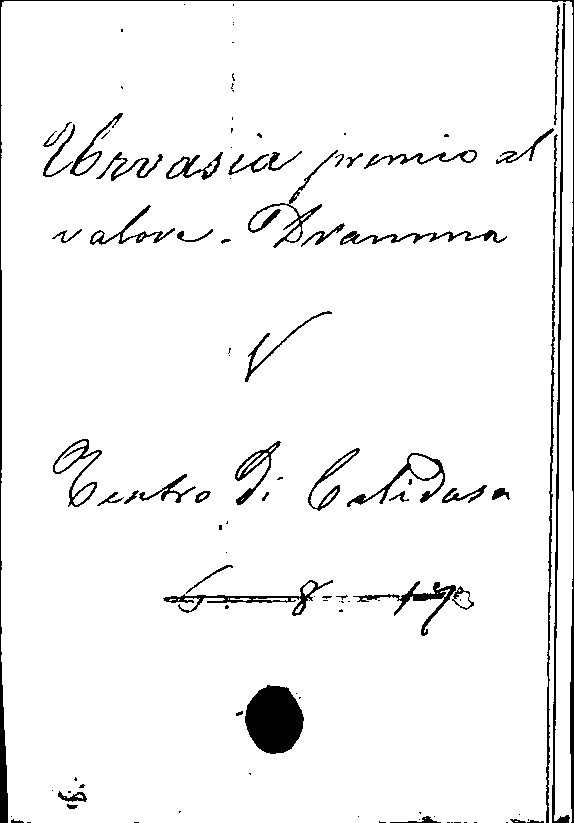 Urvasia premio al
valore. Dramma
V
Teatro di Calidasa
6. 8. 17